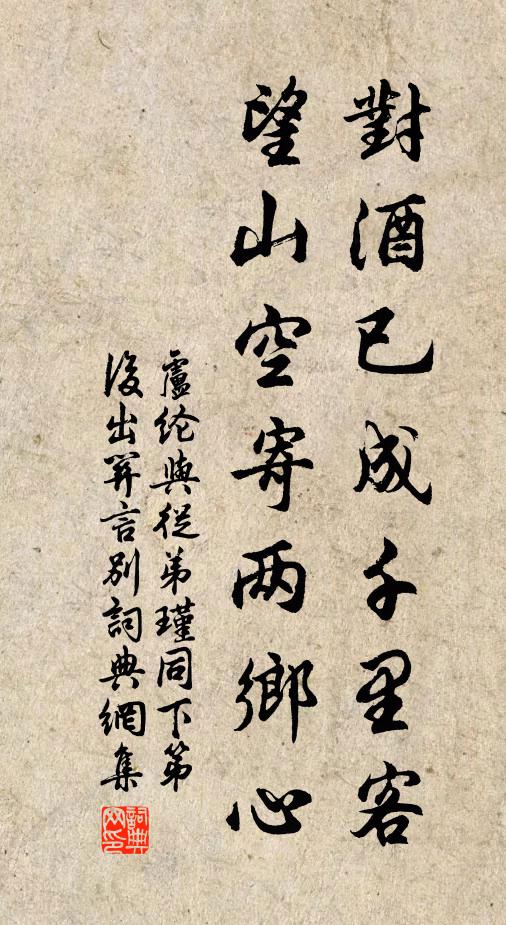 對酒已成千里客
望山空寄两鄉心
盧纶與從弟瑾同下第
後出關言別詞典網集
詞典
网印